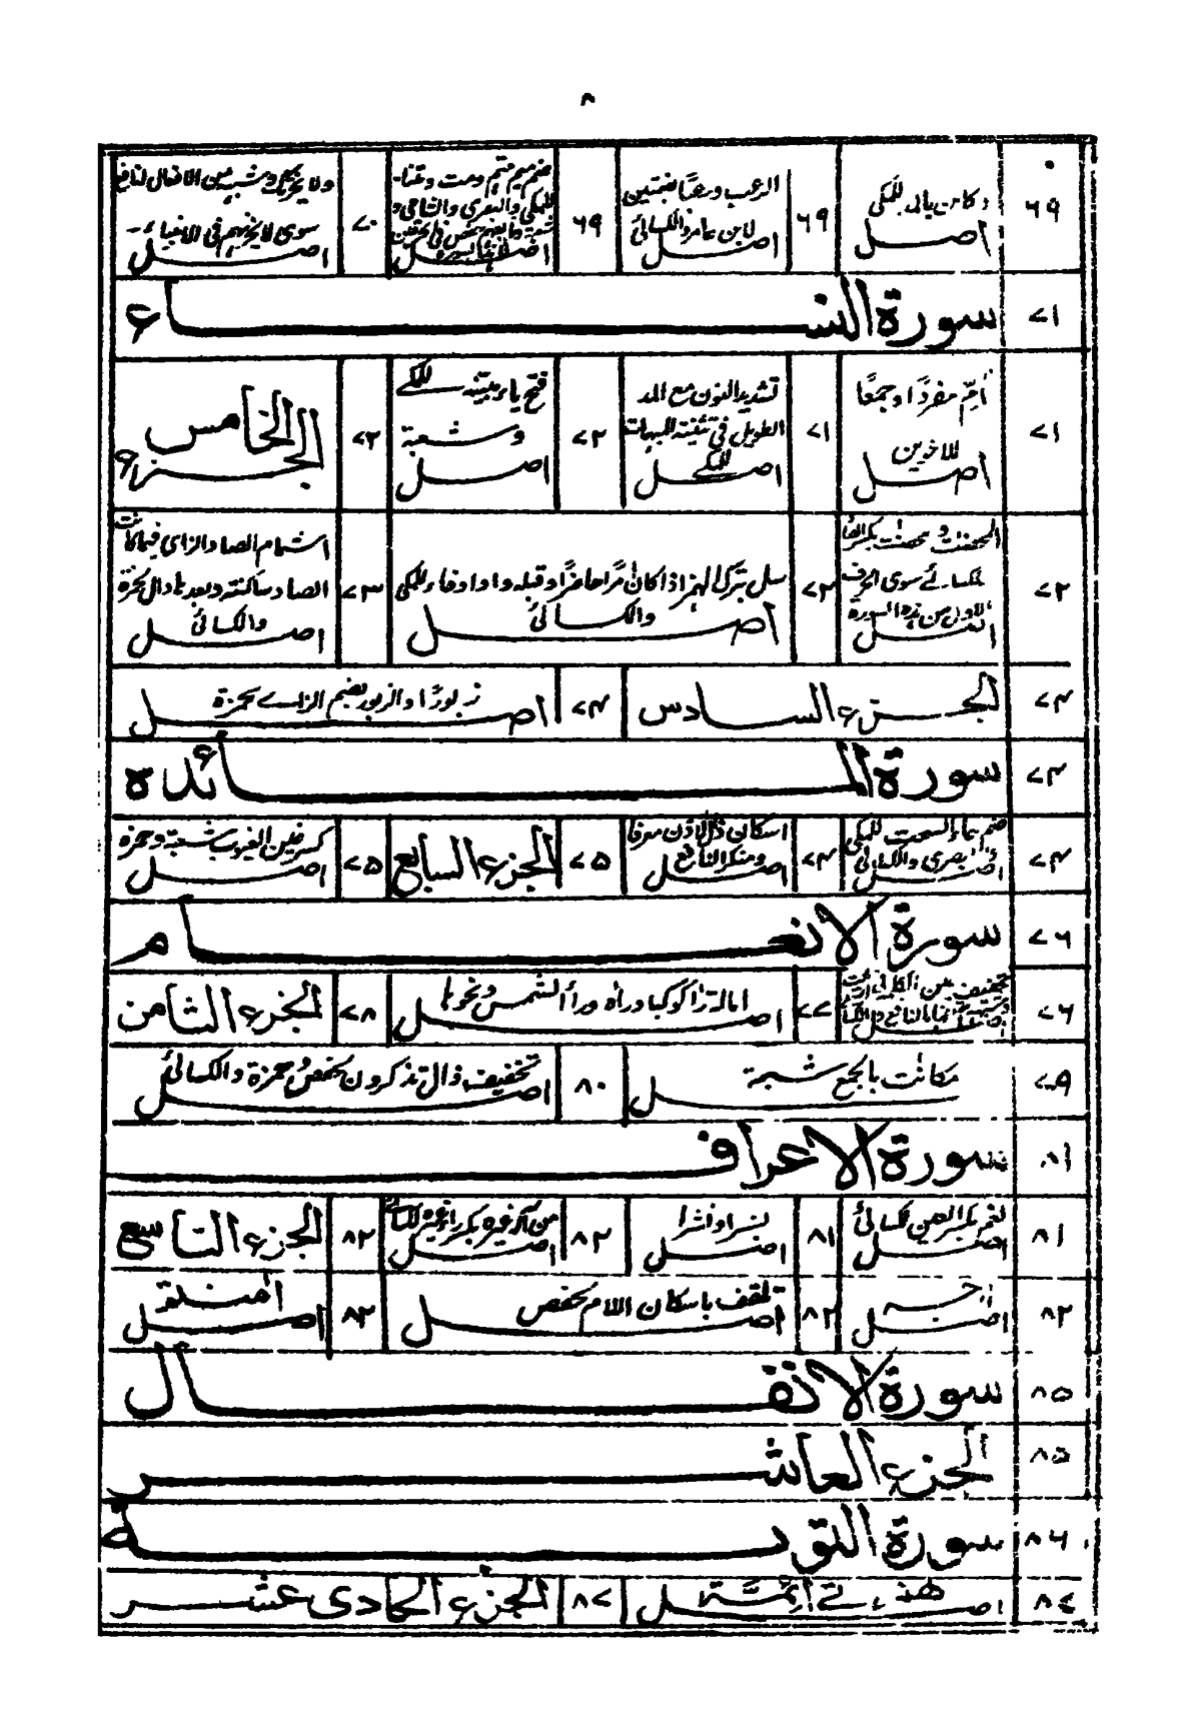 ٨
٦٩
وكاين بالمد للمكي
اصل
٦٩
الرعب ورعبًا بضمتين
لابن عامر والكسائي
اصل
٦٩
ضم ميم متم ومت ومتنا
للمكي والبصري والشامي و
شعبة
اصل
٧٠
ولا يحزنك وشبهه من الافعال لنافع
سوى لا يحزنهم في الانبياء
اصل
٧١
سورة النساء
٧١
أم مفردًا وجمعًا
للاخوين
اصل
٧١
تشديد النون مع المد
الطويل في تثنية المبهمات
للمكي
اصل
٧٢
فتح ياء مبينة للمكي
وشعبة
اصل
٧٢
الجزء الخامس
٧٢
المحصنت و محصنت بكسر الصاد
للكسائي سوى الحرف
الاول من هذه السورة
اصل
٧٢
سل بترك الهمز اذا كان امرًا حاضرًا وقبله واو او فاء للمكي
والكسائي
اصل
٧٣
اشمام الصاد الزاي فيما كانت
الصاد ساكنة وبعدها دال لحمزة
والكسائي
اصل
٧٤
الجزء السادس
٧٤
زبورًا والزبور بضم الزاي لحمزة
اصل
٧٤
سورة المائدة
٧٤
ضم حاء السحت للمكي
والبصري والكسائي
اصل
٧٤
اسكان ذال الاذن معرفا
ومنكرا لنافع
اصل
٧٥
الجزء السابع
٧٥
كسر غين الغيوب لشعبة وحمزة
اصل
٧٦
سورة الانعام
٧٦
اصل
٧٧
امالة رأ كوكبا ورآه ورأ الشمس ونحوها
اصل
٧٨
الجزء الثامن
٧٩
مكانت بالجمع شعبة
اصل
٨٠
تخفيف ذال تذكرون لحفص وحمزة والكسائي
اصل
٨١
سورة الاعراف
٨١
نعم بكسر العين للكسائي
اصل
٨١
بشرا ونشرا
اصل
٨٢
من اله غيره بكسر راء غيره للكسائي
اصل
٨٢
الجزء التاسع
٨٢
ارجه
اصل
٨٢
تلقف باسكان اللام لحفص
اصل
٨٣
اٰمنتم
اصل
٨٥
سورة الانفال
٨٥
الجزء العاشر
٨٦
سورة التوبة
٨٧
همزتي ائمة
اصل
٨٧
الجزء الحادي عشر